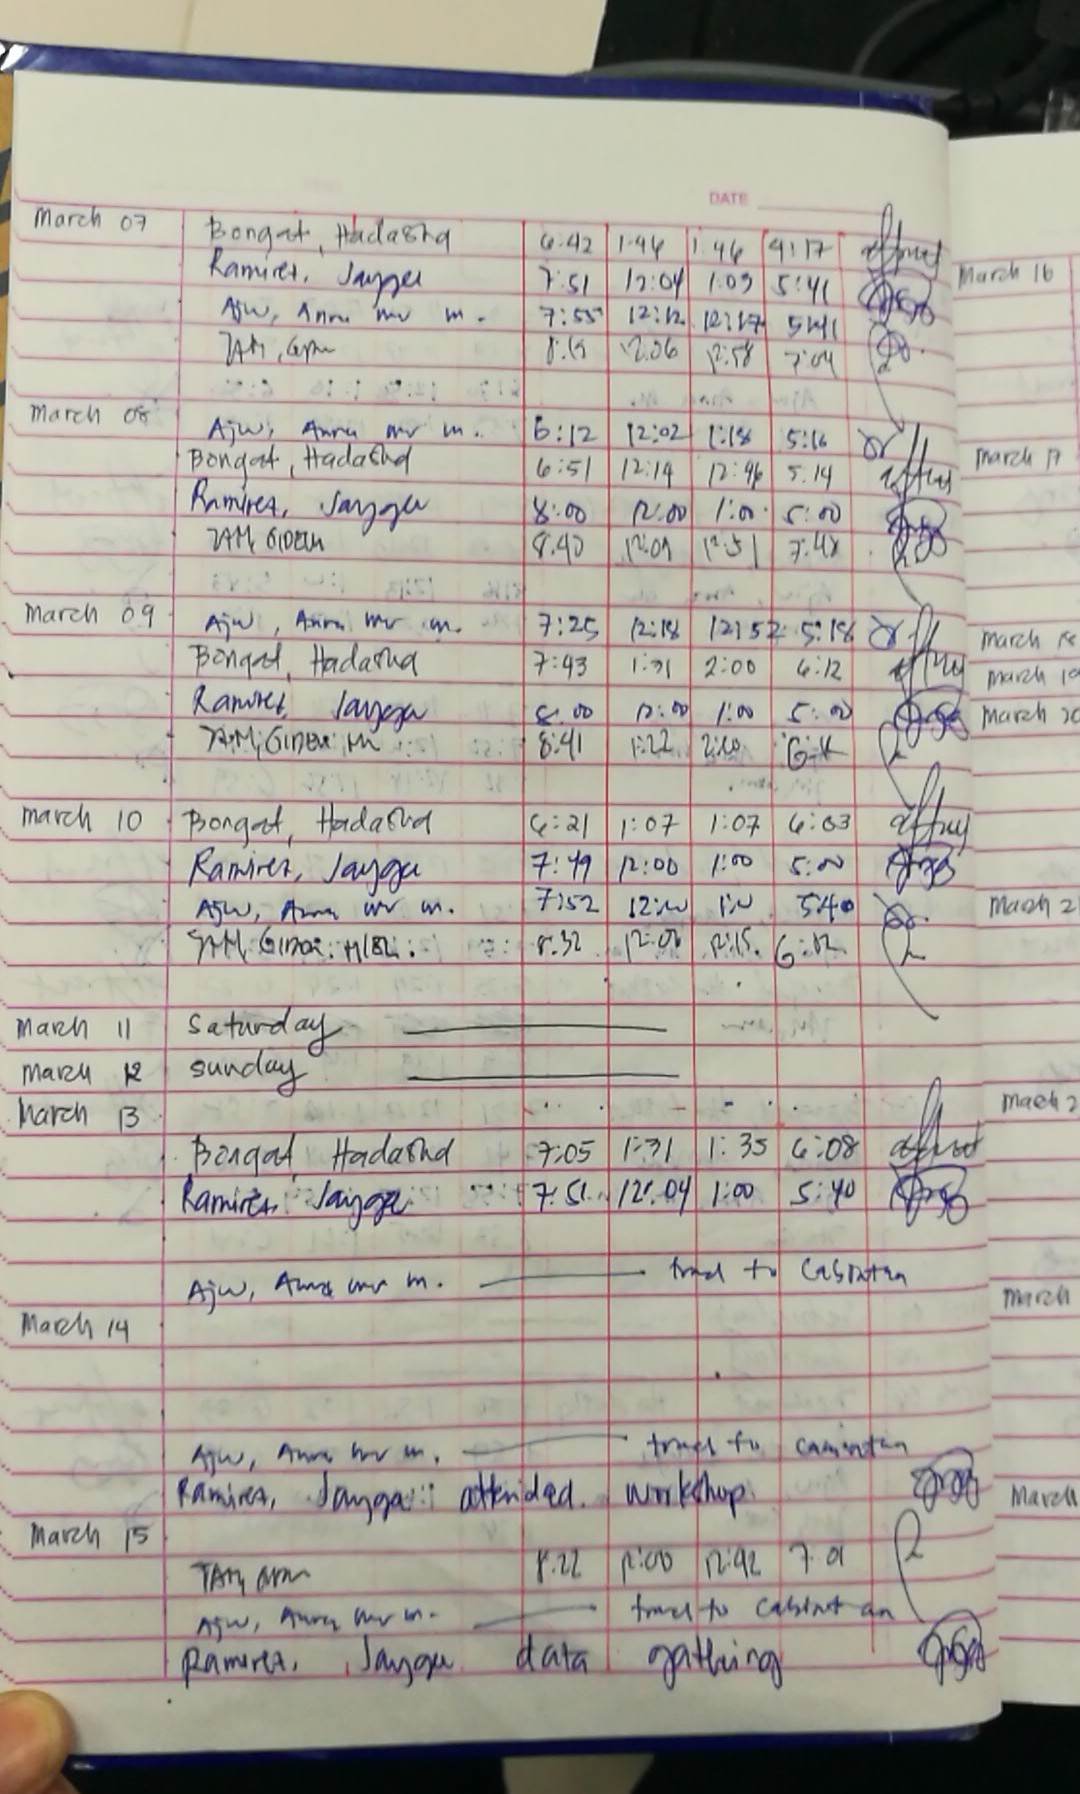 DATE
March 07 Bongat, Hadasha 6:42 1:46 1:46 4:17
Ramirez, Jayger 7:51 12:04 1:03 5:41
Ajw, Anna m. 7:55 12:12 12:17 5:41
TAM, 8:15 12:06 12:58 7:04
March 08
Ajw, Anna m. 6:12 12:02 1:18 5:16
Bongat, Hadasha 6:51 12:14 12:46 5:14
Ramirez, Jayger 8:00 12:00 1:00 5:00
TAM, GIDEON 8:40 12:09 12:51 7:48
March 09 Ajw, Anna m. 7:25 12:18 12:52 5:18
Bongat, Hadasha 7:43 1:31 2:00 6:12
Ramirez, Jayger 8:00 12:00 1:00 5:00
TAM, 8:41 1:22
March 10 Bongat, Hadasha 6:21 1:07 1:07 6:03
Ramirez, Jayger 7:49 12:00 1:00 5:00
Ajw, Anna m. 7:52 12:00 1:00 5:40
TAM, 8:32 12:15 6:12
March 11 Saturday
March 12 Sunday
March 13
Bongat, Hadasha 7:05 1:31 1:35 6:08
Ramirez, Jayger 7:51 12:04 1:00 5:40
Ajw, Anna m. travel to Cabintan
March 14
Ajw, Anna m. travel to Cabintan
Ramirez, Jayger attended workshop
March 15
TAM, 8:22 12:00 12:42 7:01
Ajw, Anna m. travel to Cabintan
Ramirez, Jayger data gathring
March 16
March 17
March 18
March 19
March 20
March 2
March 2
March
March